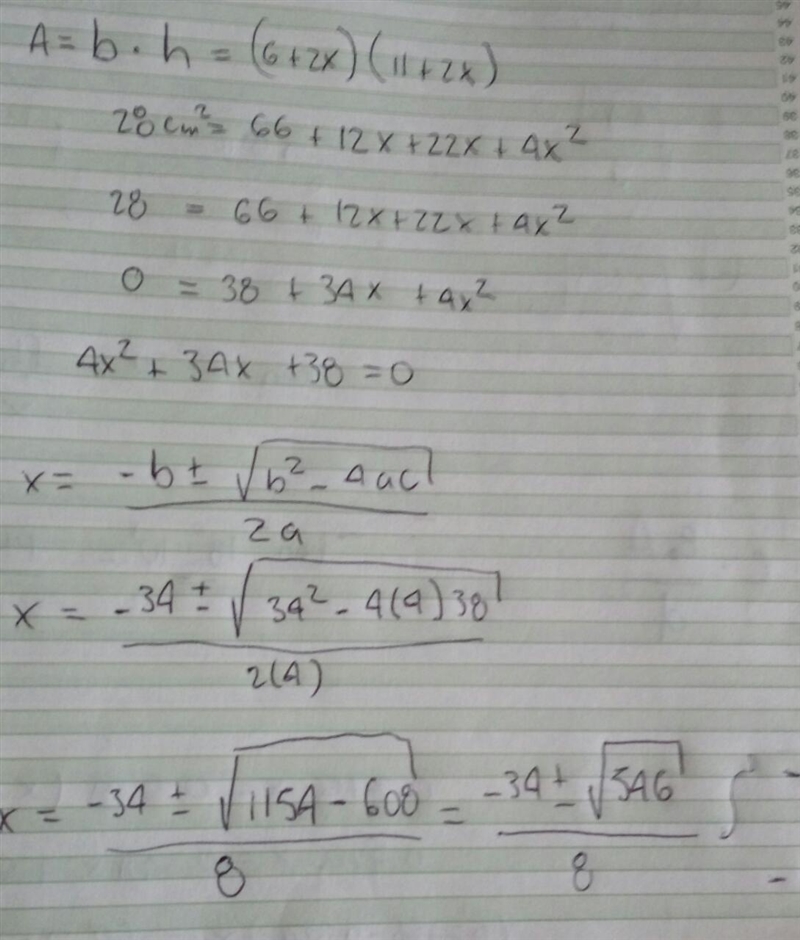 A = b · h = (6+2x)(11+2x)
28 cm² = 66 + 12x + 22x + 4x²
28 = 66 + 12x + 22x + 4x²
0 = 38 + 34x + 4x²
4x² + 34x + 38 = 0
x = -b ± √(b² - 4ac) / 2a
x = -34 ± √(34² - 4(4)38) / 2(4)
x = -34 ± √(1154 - 608) / 8 = -34 ± √546 / 8